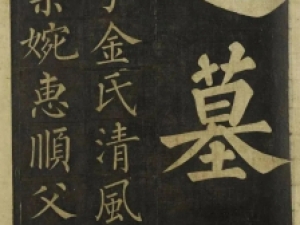 墓
金氏清風
婉惠順父